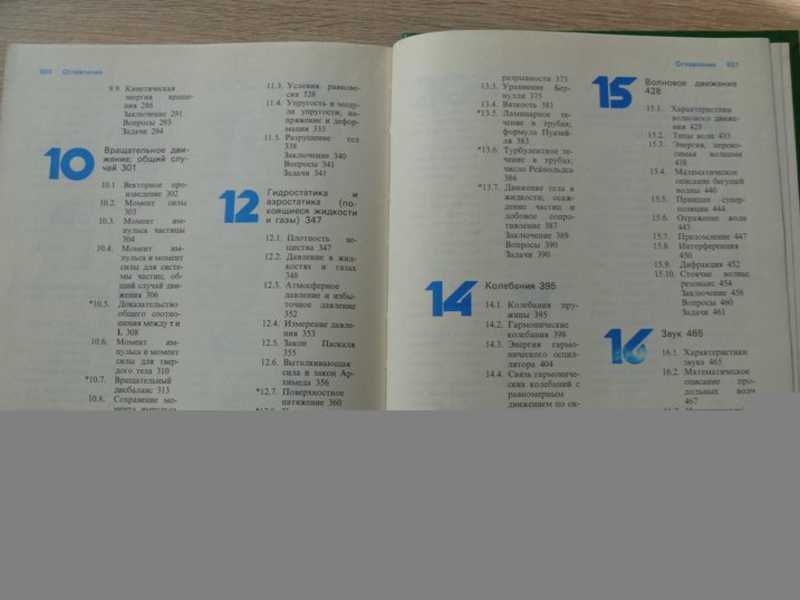 Оглавление
9.9. Кинетическая
энергия враще-
ния 286
Заключение 291
Вопросы 293
Задачи 294
10
Вращательное дви-
жение; общий слу-
чай 301
10.1 Векторное про-
изведение 302
10.2. Момент силы
303
10.3. Момент им-
пульса частицы
304
10.4. Момент им-
пульса и момент
силы для систе-
мы частиц; об-
щий случай дви-
жения 306
*10.5. Доказательство
общего соотно-
шения между τ и
L 308
10.6. Момент им-
пульса и момент
силы для твер-
дого тела 310
*10.7. Вращательный
дисбаланс 313
10.8. Сохранение мо-
мента импульса
11.3. Условия равнове-
сия 328
11.4. Упругость и моду-
ли упругости; на-
пряжение и дефор-
мация 333
11.5. Разрушение тел
338
Заключение 340
Вопросы 341
Задачи 341
12
Гидростатика и
аэростатика (по-
коящиеся жидкости
и газы) 347
12.1. Плотность ве-
щества 347
12.2. Давление в жид-
костях и газах
348
12.3. Атмосферное
давление и избы-
точное давление
352
12.4. Измерение давле-
ния 353
12.5. Закон Паскаля
355
12.6. Выталкивающая
сила и закон Ар-
химеда 356
*12.7. Поверхностное
натяжение 360
Оглавление 851
разрывности 373
13.3. Уравнение Бер-
нулли 375
13.4. Вязкость 381
*13.5. Ламинарное те-
чение в трубах;
формула Пуазей-
ля 383
*13.6. Турбулентное те-
чение в трубах;
число Рейнольдса
386
*13.7. Движение тела в
жидкости; осаж-
дение частиц и
лобовое сопро-
тивление 387
Заключение 389
Вопросы 390
Задачи 390
14
Колебания 395
14.1. Колебания пру-
жины 395
14.2. Гармонические
колебания 398
14.3. Энергия гармо-
нического осцил-
лятора 404
14.4. Связь гармониче-
ских колебаний с
равномерным
движением по ок-
15
Волновое движение
428
15.1. Характеристики
волнового движе-
ния 429
15.2. Типы волн 433
15.3. Энергия, перено-
симая волнами
438
15.4. Математическое
описание бегущей
волны 440
15.5. Принцип супер-
позиции 444
15.6. Отражение волн
445
15.7. Преломление 447
15.8. Интерференция
450
15.9. Дифракция 452
15.10. Стоячие волны;
резонанс 454
Заключение 458
Вопросы 460
Задачи 461
16
Звук 465
16.1. Характеристики
звука 465
16.2. Математическое
описание про-
дольных волн
467